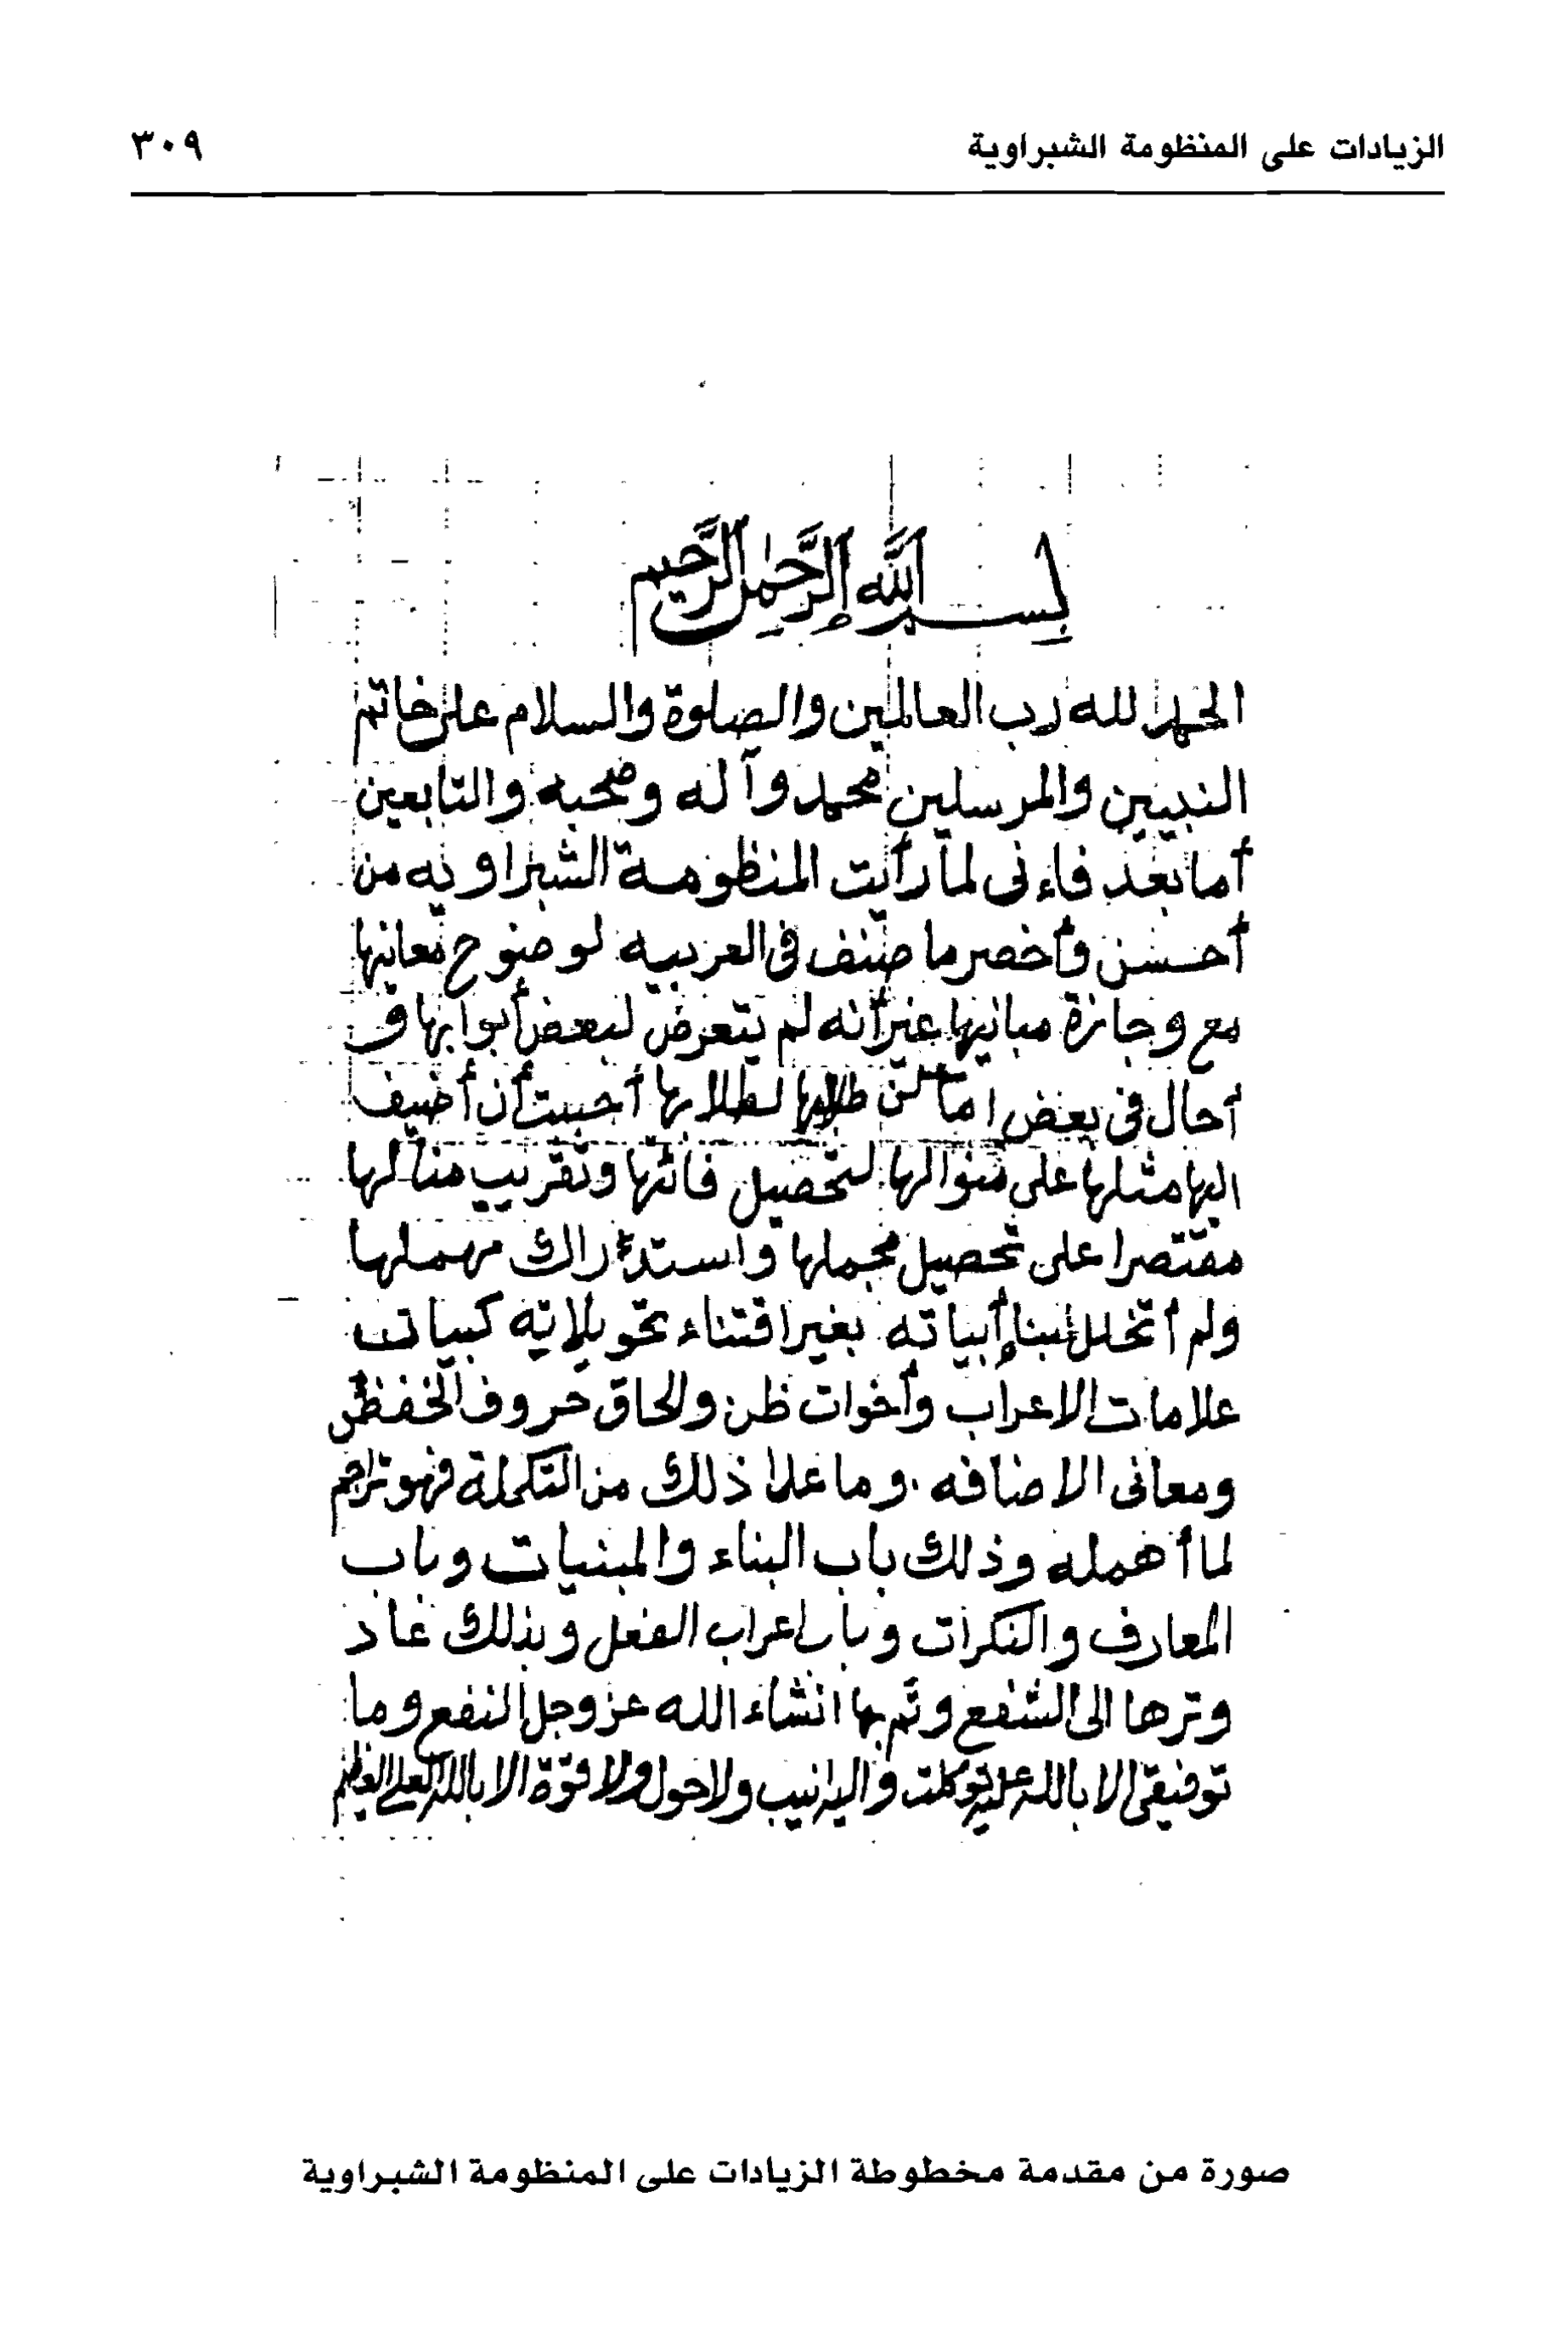 الزيادات على المنظومة الشبراوية
٣٠٩
بسم الله الرحمن الرحيم
الحمد لله رب العالمين والصلوة والسلام على خاتم
النبيين والمرسلين محمد وآله وصحبه والتابعين
أما بعد فاءنى لما رأيت المنظومة الشبراويه من
أحسن وأخصر ما صنف فى العربيه لوضوح معانيها
مع وجازة مبانيها غير أنه لم يتعرض لبعض أبوابها و
أحال فى بعض لطلابها أحببت أن أضيف
اليها مثلها على منوالها لتحصيل فائتها وتقريب منالها
مقتصرا على تحصيل مجملها واستدراك مهملها
ولم أتخلل لبنا أبياته بغير اقتناء تحويلاته كبيات
علامات الاعراب وأخوات ظن والحاق حروف الخفض
ومعانى الاضافه . وما علا ذلك من التكملة فهو تراجم
لما أهمله وذلك باب البناء والمبنيات وباب
المعارف والنكرات وباب اعراب الفعل وبذلك عاد
وترها الى الشفع وتم بها انشاء الله عز وجل النفع وما
توفيقى الا بالله عليه توكلت واليه انيب ولا حول ولا قوة الا بالله العلى العظيم
صورة من مقدمة مخطوطة الزيادات على المنظومة الشبراوية